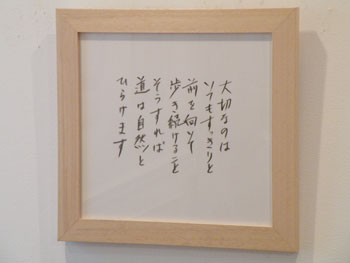 大切なのは
いつもすっきりと
前を向いて
歩き続けること
そうすれば
道は自然と
ひらけます